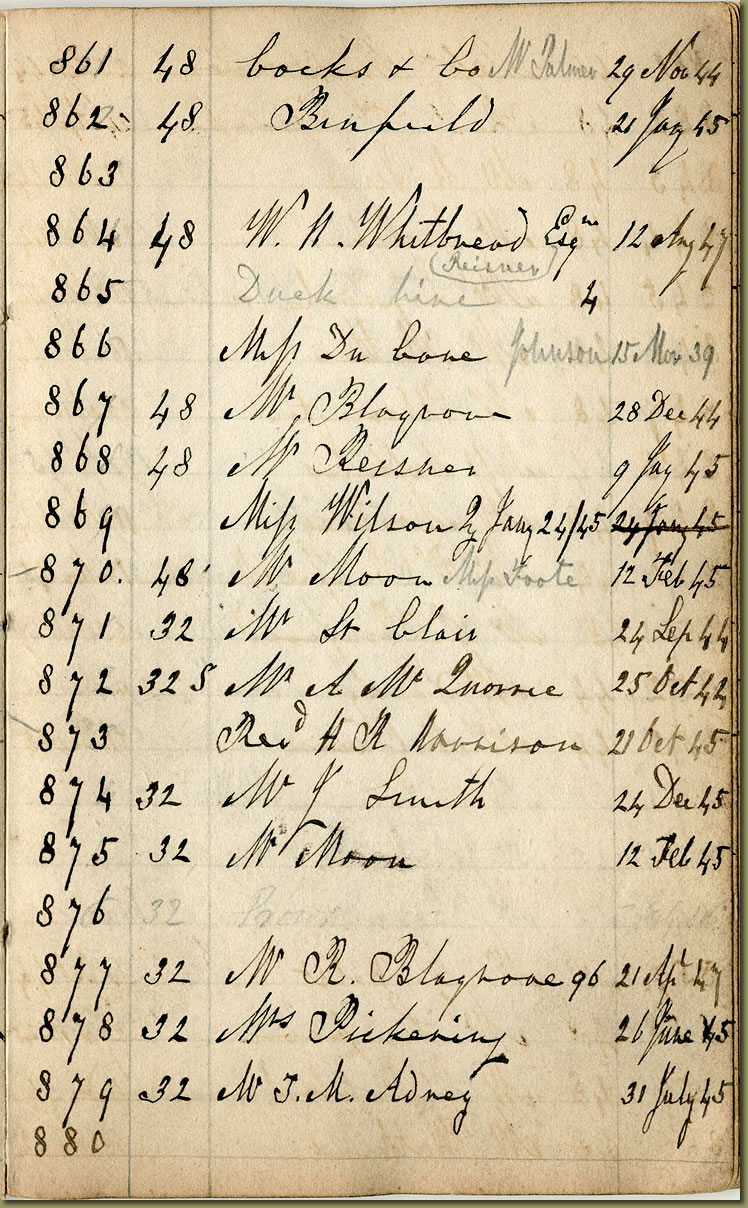 861 48 Cocks & Co Mr Palmer 29 Nov 44
862 48 Binfield 21 Jay 45
863
864 48 W. H. Whitbread Esqre 12 Aug 47
865 Duck line (Reisner) 4
866 Miss Du Cane Johnson 15 Nov 39
867 48 Mr Blagrove 28 Dec 44
868 48 Mr Reisner 9 Jay 45
869 Miss Wilson Jany 24/45 24 Jany 45
870. 48 Mr Moon Miss Foote 12 Feb 45
871 32 Mr St Clair 24 Sep 44
872 32 S Mr A Mc 25 Oct 42
873 Revd H R Harrison 21 Oct 45
874 32 Mr J Smith 24 Dec 45
875 32 Mr Moon 12 Feb 45
876 32
877 32 Mr R. Blagrove 96 21 Apl 47
878 32 Mrs Pickering 26 June 45
879 32 Mr T. M. Adney 31 July 45
880